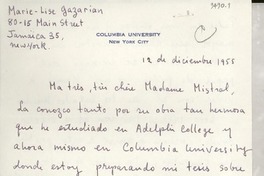 Marie-Lise Gazarian
80-15 Main Street
Jamaica 35,
New York.
COLUMBIA UNIVERSITY
NEW YORK CITY
12 de diciembre 1955
Ma très, très chère Madame Mistral,
La conozco tanto por su obra tan hermosa
que he estudiado en Adelphi College y
ahora mismo en Columbia University
donde estoy preparando mi tesis sobre